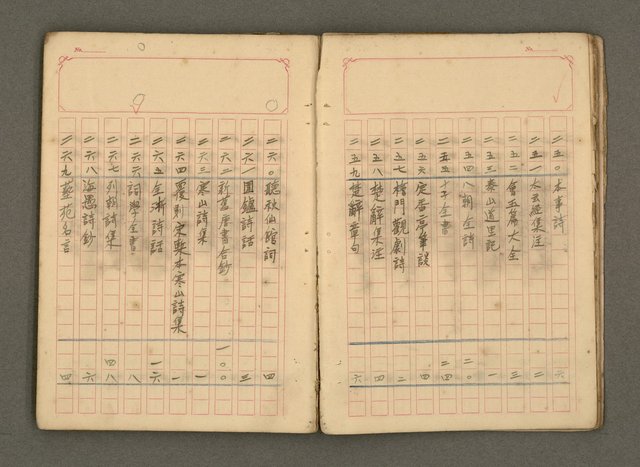 No.
二五〇本事詩 六
二五一太玄經集注 二
二五二會五篇大全 三
二五三泰山道里記 一
二五四朝全詩 二〇
二五五十子全書 二四
二五六定香亭筆談 四
二五七檐門觀劇詩 二
二五八楚辭集注 四
二五九楚辭章句 六
No.
二六〇聽秋仙館詞 四
二六一圍爐詩話 三
二六二新舊唐書合鈔 一〇〇
二六三寒山詩集 一
二六四覆刻宋槧本寒山詩集 一
二六五全浙詩話 一六
二六六詞學全書 八
二六七列朝詩集 四八
二六八海愚詩鈔 六
二六九藝苑名言 四